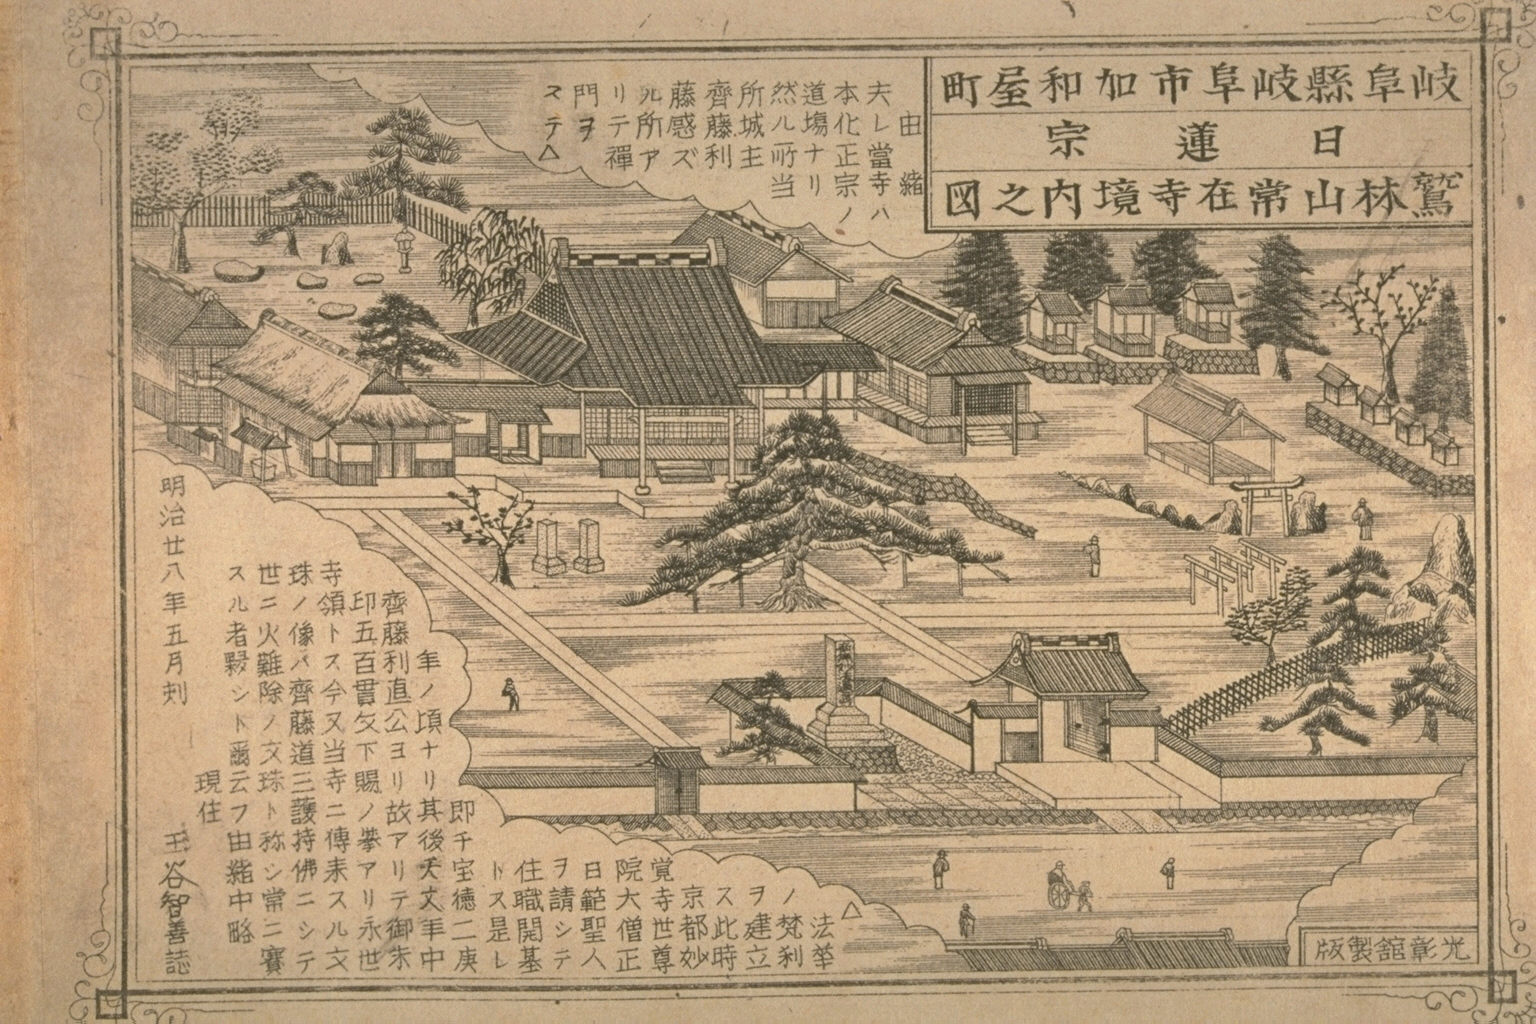 岐阜縣岐阜市加和屋町
日蓮宗
鷲林山常在寺境内之図
由緒
夫レ當寺ハ
本化正宗ノ
道塲ナリ
然ル所当
所城主
齊藤利
藤感ズ
ル所ア
リテ禪
門ヲ
ステ△
△法華
ノ梵刹
ヲ建立
ス此時
京都妙
覚寺世尊
院大僧正
日範聖人
ヲ請シテ
住職開基
トス是レ
即千宝徳二庚
年ノ頃ナリ其後天文年中
齊藤利直公ヨリ故アリテ御朱
印五百貫文下賜ノ挙アリ永世
寺領トス今又当寺ニ傳来スル文
珠ノ像パ齊藤道三護持佛ニシテ
世ニ火難除ノ文珠ト称シ常ニ賽
スル者夥シト爾云フ由緒中略
現住
玉谷智善誌
明治廿八年五月刻
光彰舘製版